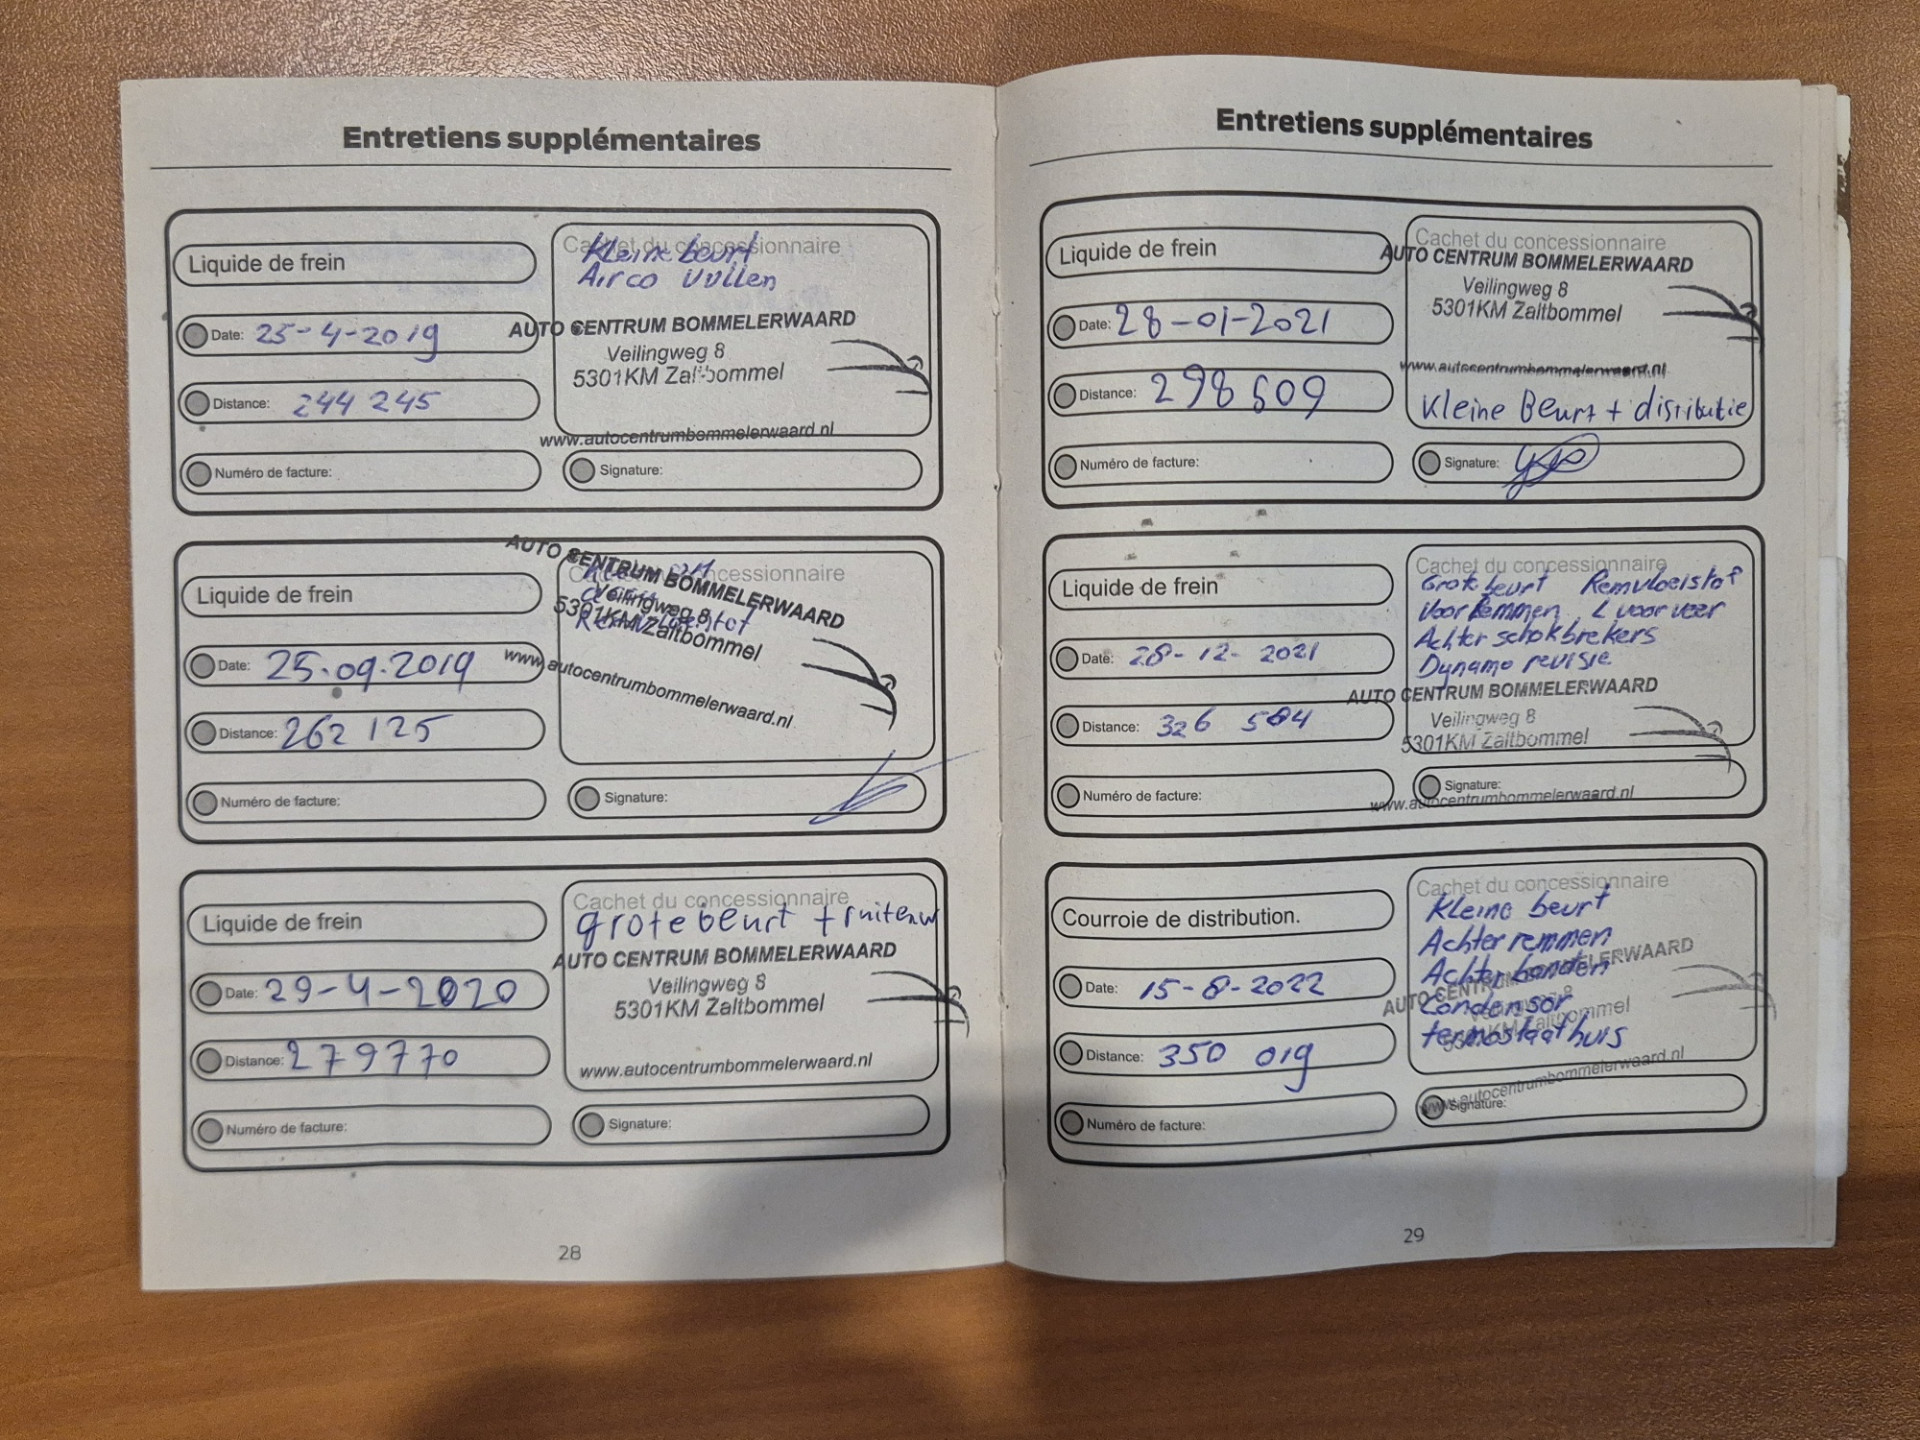 Entretiens supplémentaires
Liquide de frein
Date: 25-4-2019
Distance: 244 245
Numéro de facture:
Cachet du concessionnaire
Kleine beurt
Airco vullen
AUTO CENTRUM BOMMELERWAARD
Veilingweg 8
5301KM Zaltbommel
www.autocentrumbommelerwaard.nl
Signature:
Liquide de frein
Date: 25-09-2019
Distance: 262 125
Numéro de facture:
Cachet du concessionnaire
AUTO CENTRUM BOMMELERWAARD
Veilingweg 8
5301KM Zaltbommel
www.autocentrumbommelerwaard.nl
Signature:
Liquide de frein
Date: 29-4-2020
Distance: 279770
Numéro de facture:
Cachet du concessionnaire
grote beurt +
AUTO CENTRUM BOMMELERWAARD
Veilingweg 8
5301KM Zaltbommel
www.autocentrumbommelerwaard.nl
Signature:
28
Entretiens supplémentaires
Liquide de frein
Date: 28-01-2021
Distance:
Numéro de facture:
Cachet du concessionnaire
AUTO CENTRUM BOMMELERWAARD
Veilingweg 8
5301KM Zaltbommel
www.autocentrumbommelerwaard.nl
Kleine Beurt + distributie
Signature:
Liquide de frein
Date: 28-12-2021
Distance: 326 584
Numéro de facture:
Cachet du concessionnaire
Grote beurt Remvloeistof
Voor remmen, L voor veer
Achter schokbrekers
Dynamo revisie
AUTO CENTRUM BOMMELERWAARD
Veilingweg 8
5301KM Zaltbommel
Signature:
www.autocentrumbommelerwaard.nl
Courroie de distribution.
Date: 15-8-2022
Distance: 350 019
Numéro de facture:
Cachet du concessionnaire
Kleine beurt
Achter remmen
Achter banden
Condensor
termostaathuis
AUTO CENTRUM BOMMELERWAARD
Veilingweg 8
5301KM Zaltbommel
www.autocentrumbommelerwaard.nl
Signature:
29